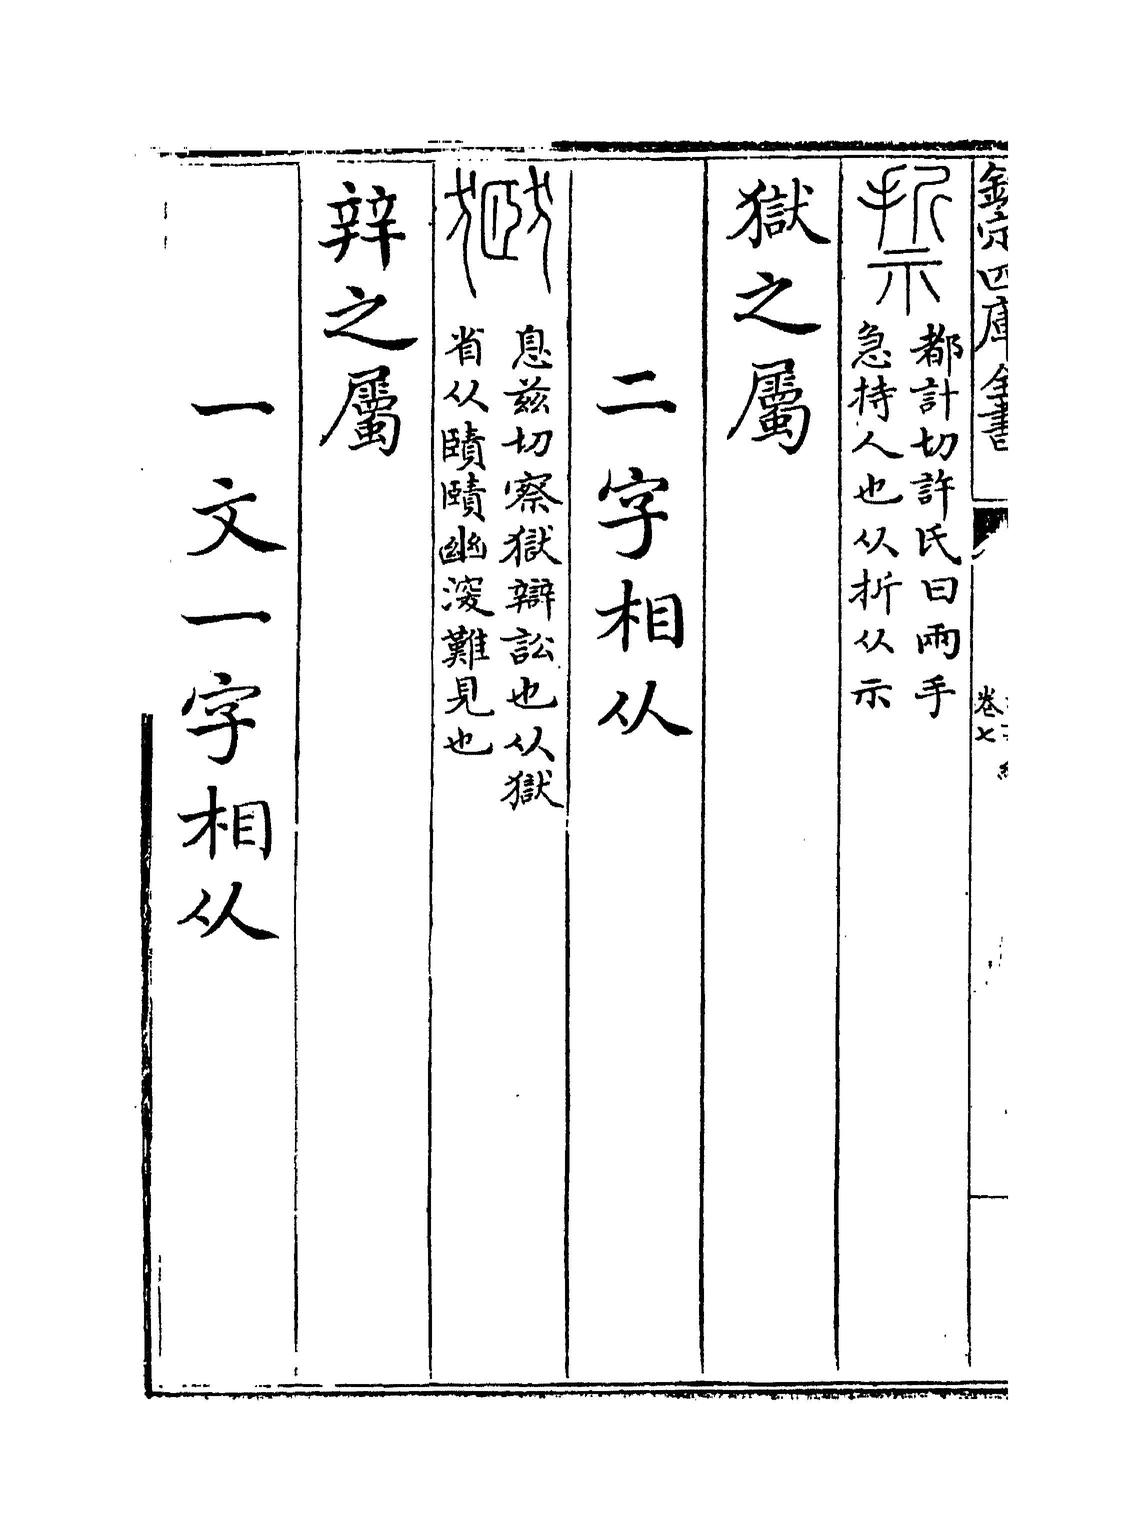 欽定四庫全書
卷七
都計切許氏曰兩手
急持人也从折从示
獄之屬
二字相从
息兹切察獄辯訟也从獄
省从賾賾幽深難見也
辡之屬
一文一字相从